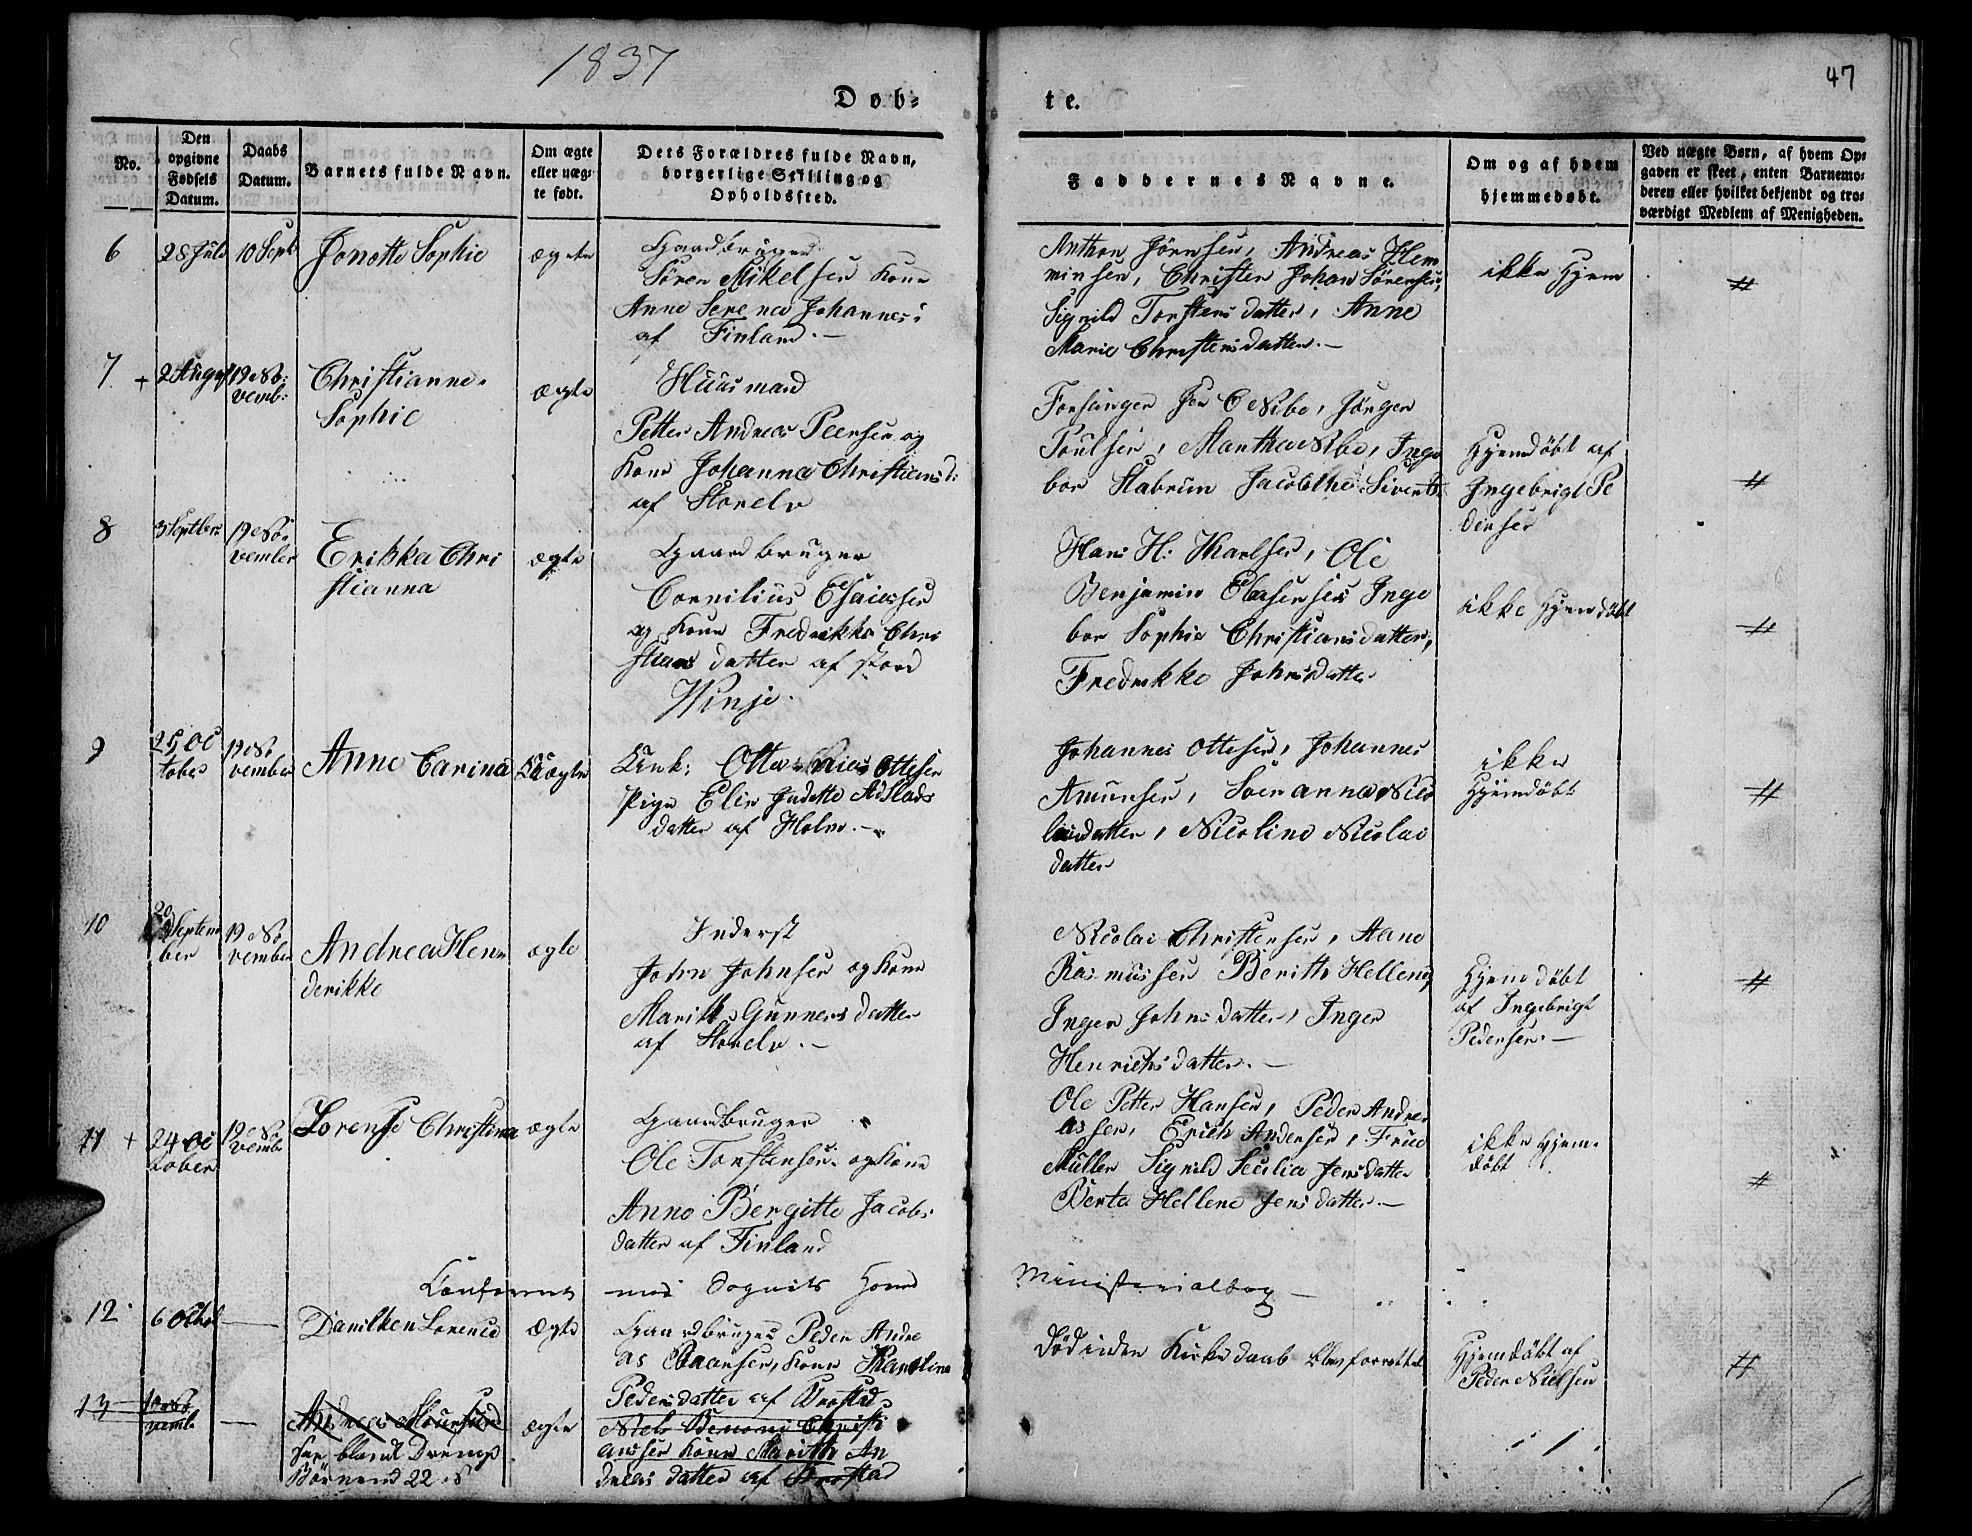 1837
47
Døb-
te.
No.
Den
opgivne
Fødsels
Datum.
Daabs
Datum.
Barnets fulde Navn.
Om ægte
eller uæg-
te født.
Dets Forældres fulde Navn,
borgerlige Stilling og
Opholdssted.
Faddernes Navne.
Om og af hvem
hjemmedøbt.
Ved uægte Børn, af hvem Op-
gaven er skeet, enten Barnemo-
deren eller hvilket bekjendt og tro-
værdigt Medlem af Menigheden.
6
28 Juli
10 Sept
Jonette Sophie
ægte
Gaardbruger
Sören Mikelsen Kone
Anne Serenea Johannes:
af Finland.-
Anthon Jörnsen, Andreas Hem
minsen, Christen Johan Sörensen,
Signild Torstensdatter, Anne
Marie Christensdatter.-
ikke Hjem
#
7
+
2 August
19 No:
vemb:
Christianne
Sophie
ægte
Huusmand
Petter Andreas Peensen og
Kone Johanna Christiansd:
af Storelv
Forsanger Jen C Nibe, Jörgen
Poulsen, Martha Nibe, Inge
bor Stabrun Jacobthe Siverts
Hjemdöbt af
Ingebrigt Pe
dersen
#
8
3 Septber
19 No-
vember
Erikka Chri
stianna
ægte
Gaardbruger
Cornilius Esaiassen
og Kone Fredrikke Chri
stians datter af stord
Winje.
Hans H: Karlsen, Ole
Benjamin Inge
bor Sophie Christiansdatter,
Fredrikke Johnsdatter
ikke Hjemdöbt
#
9
25 Oc
tober
19 No
vember
Anne Carina
Uægte
Unk: Otte Ottesen
Pige Elen Judette Adslads
datter af Holm.-
Johannes Ottesen, Johannes
Amunsen, Soerannea Nico
laidatter, Nicoline Nicolai
datter
ikke
Hjemdöbt
#
10
20
Septem
ber
19 No
vember
Andrea Hen
derikke
ægte
Inderst
John Johnsen og Kone
Marith Gunnersdatter
af Storelv.-
Nicolai Christensen, Aane
Rasmussen Berith Hellene,
Inger Johnsdatter, Inger
Henrichsdatter.-
Hjemdöbt
af Ingebrigt
Pedersen.-
#
11
+
24 Oc
tober
19 No
vembr
Lorense Christina
ægte
Gaardbruger
Ole Torstensen og Kone
Anne Bergitte Jacobs
datter af Finland
Ole Petter Hansen, Peder Andre
assen, Erich Andersen, Frue
Müller Signild Secilia Jensdatter
Berta Hellene Jensdatter.-
ikke Hjem-
döbt
#
Conferert med Sognets Hoved
Ministerialbog
12
6 Octbr
Danilken Lorence
Ægte
Gaardbruger Peder Andre
as Kone Karoline
Pedersdatter af Brostad
Död uden Kirkedaab blev forrettet
Hjemdöbt af
Peder Nielsen
#
13
10 No
vemb
Andreas
See blandt Drenge
Börnene 22
ægte
Niels Benoni Christi
ansen Kone Marith An
dreas datter af Brostad